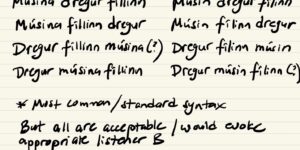 Músina dregur fillinn Músin dregur filinn
Músina fillinn dregur Músin filinn dregur
Dregur fillinn músina(?) Dregur filinn músin
Dregur músina fillinn Dregur músin filinn (?)
* Most common/standard syntax
But all are acceptable / would evoke
appropriate listener B